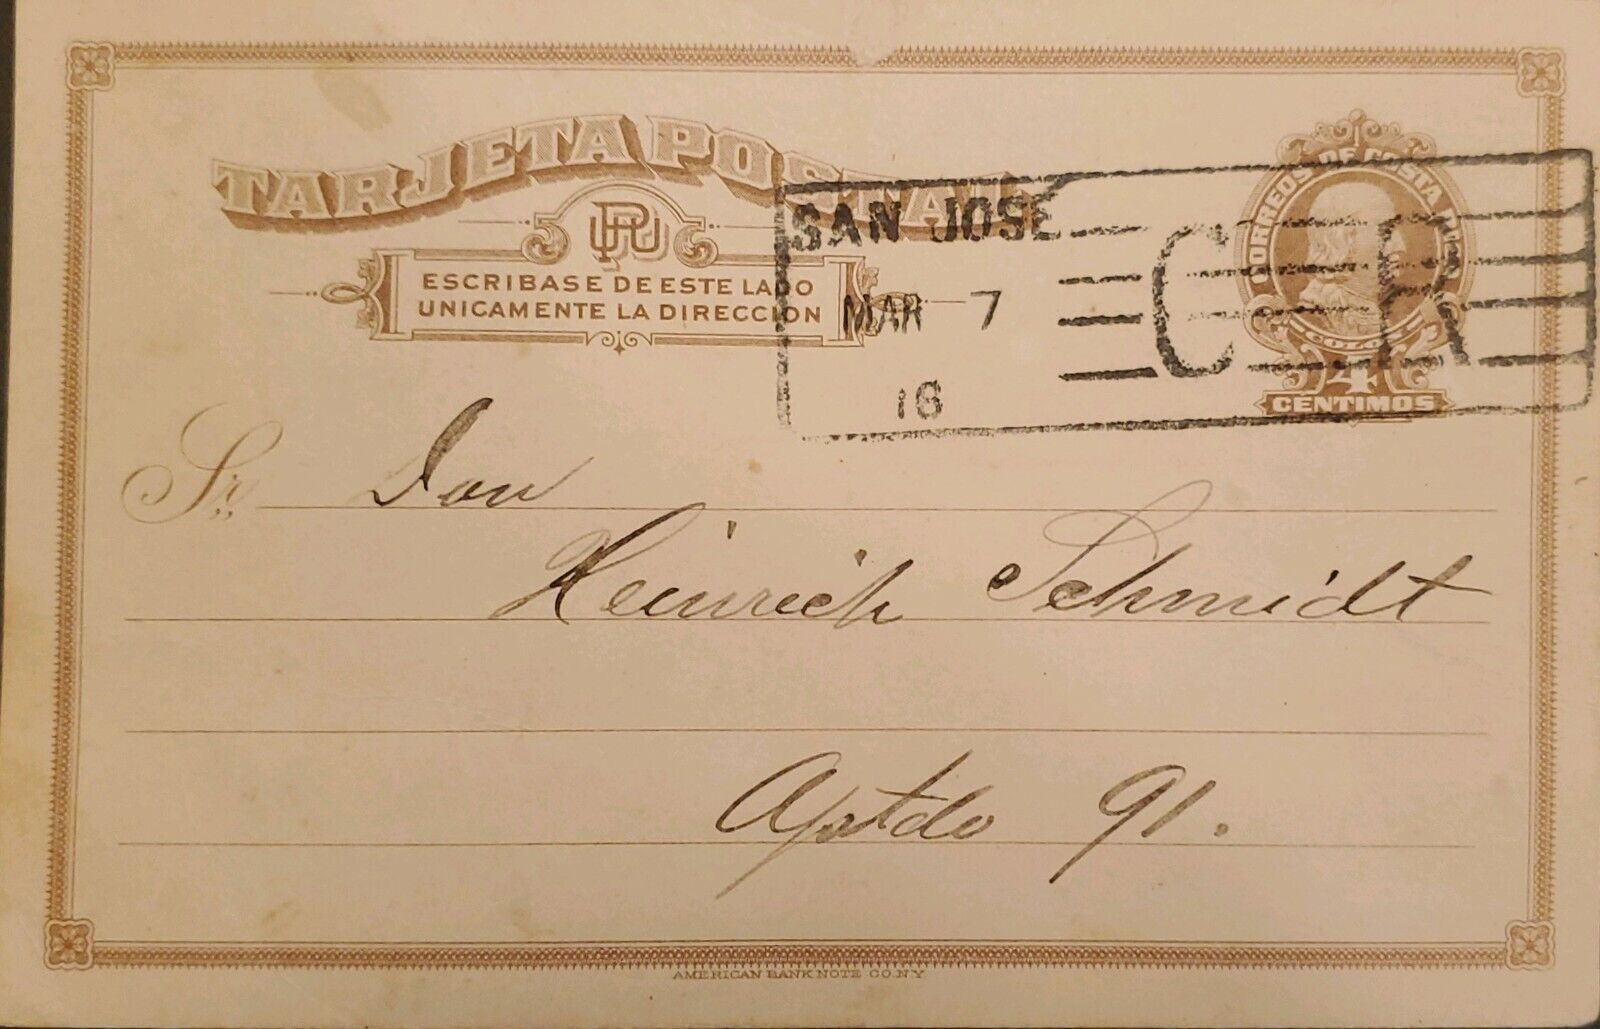 TARJETA POSTAL
UPU
ESCRIBASE DE ESTE LADO
UNICAMENTE LA DIRECCION
CORREOS DE COSTA
COLON
4
CENTIMOS
SAN JOSE
MAR 7
16
CR
Sr. Don
Heinrich Schmidt
Apstdo 91.
AMERICAN BANK NOTE CO. N.Y.